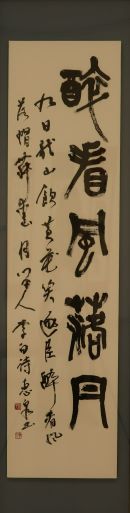 醉看風落月
九日龍山飲黃花笑逐臣醉看風
落帽舞愛月留人 李白詩